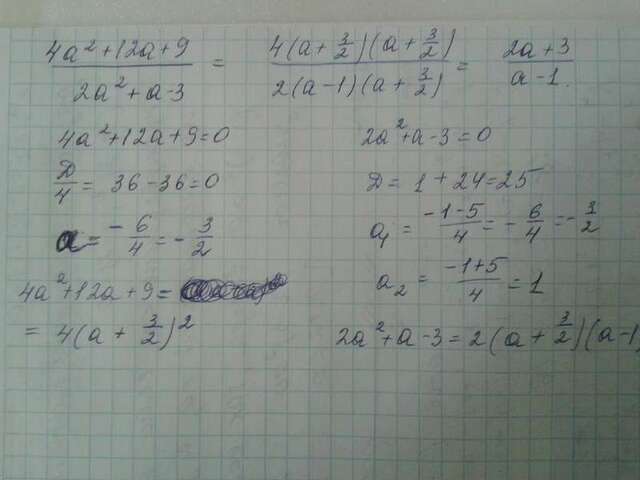 (4a²+12a+9)/(2a²+a-3) = 4(a+3/2)(a+3/2)/2(a-1)(a+3/2) = (2a+3)/(a-1).
4a²+12a+9=0
D/4 = 36-36=0
a = -6/4 = -3/2
4a²+12a+9=
= 4(a+3/2)²
2a²+a-3=0
D = 1+24=25
a₁ = (-1-5)/4 = -6/4 = -3/2
a₂ = (-1+5)/4 = 1
2a²+a-3=2(a+3/2)(a-1)